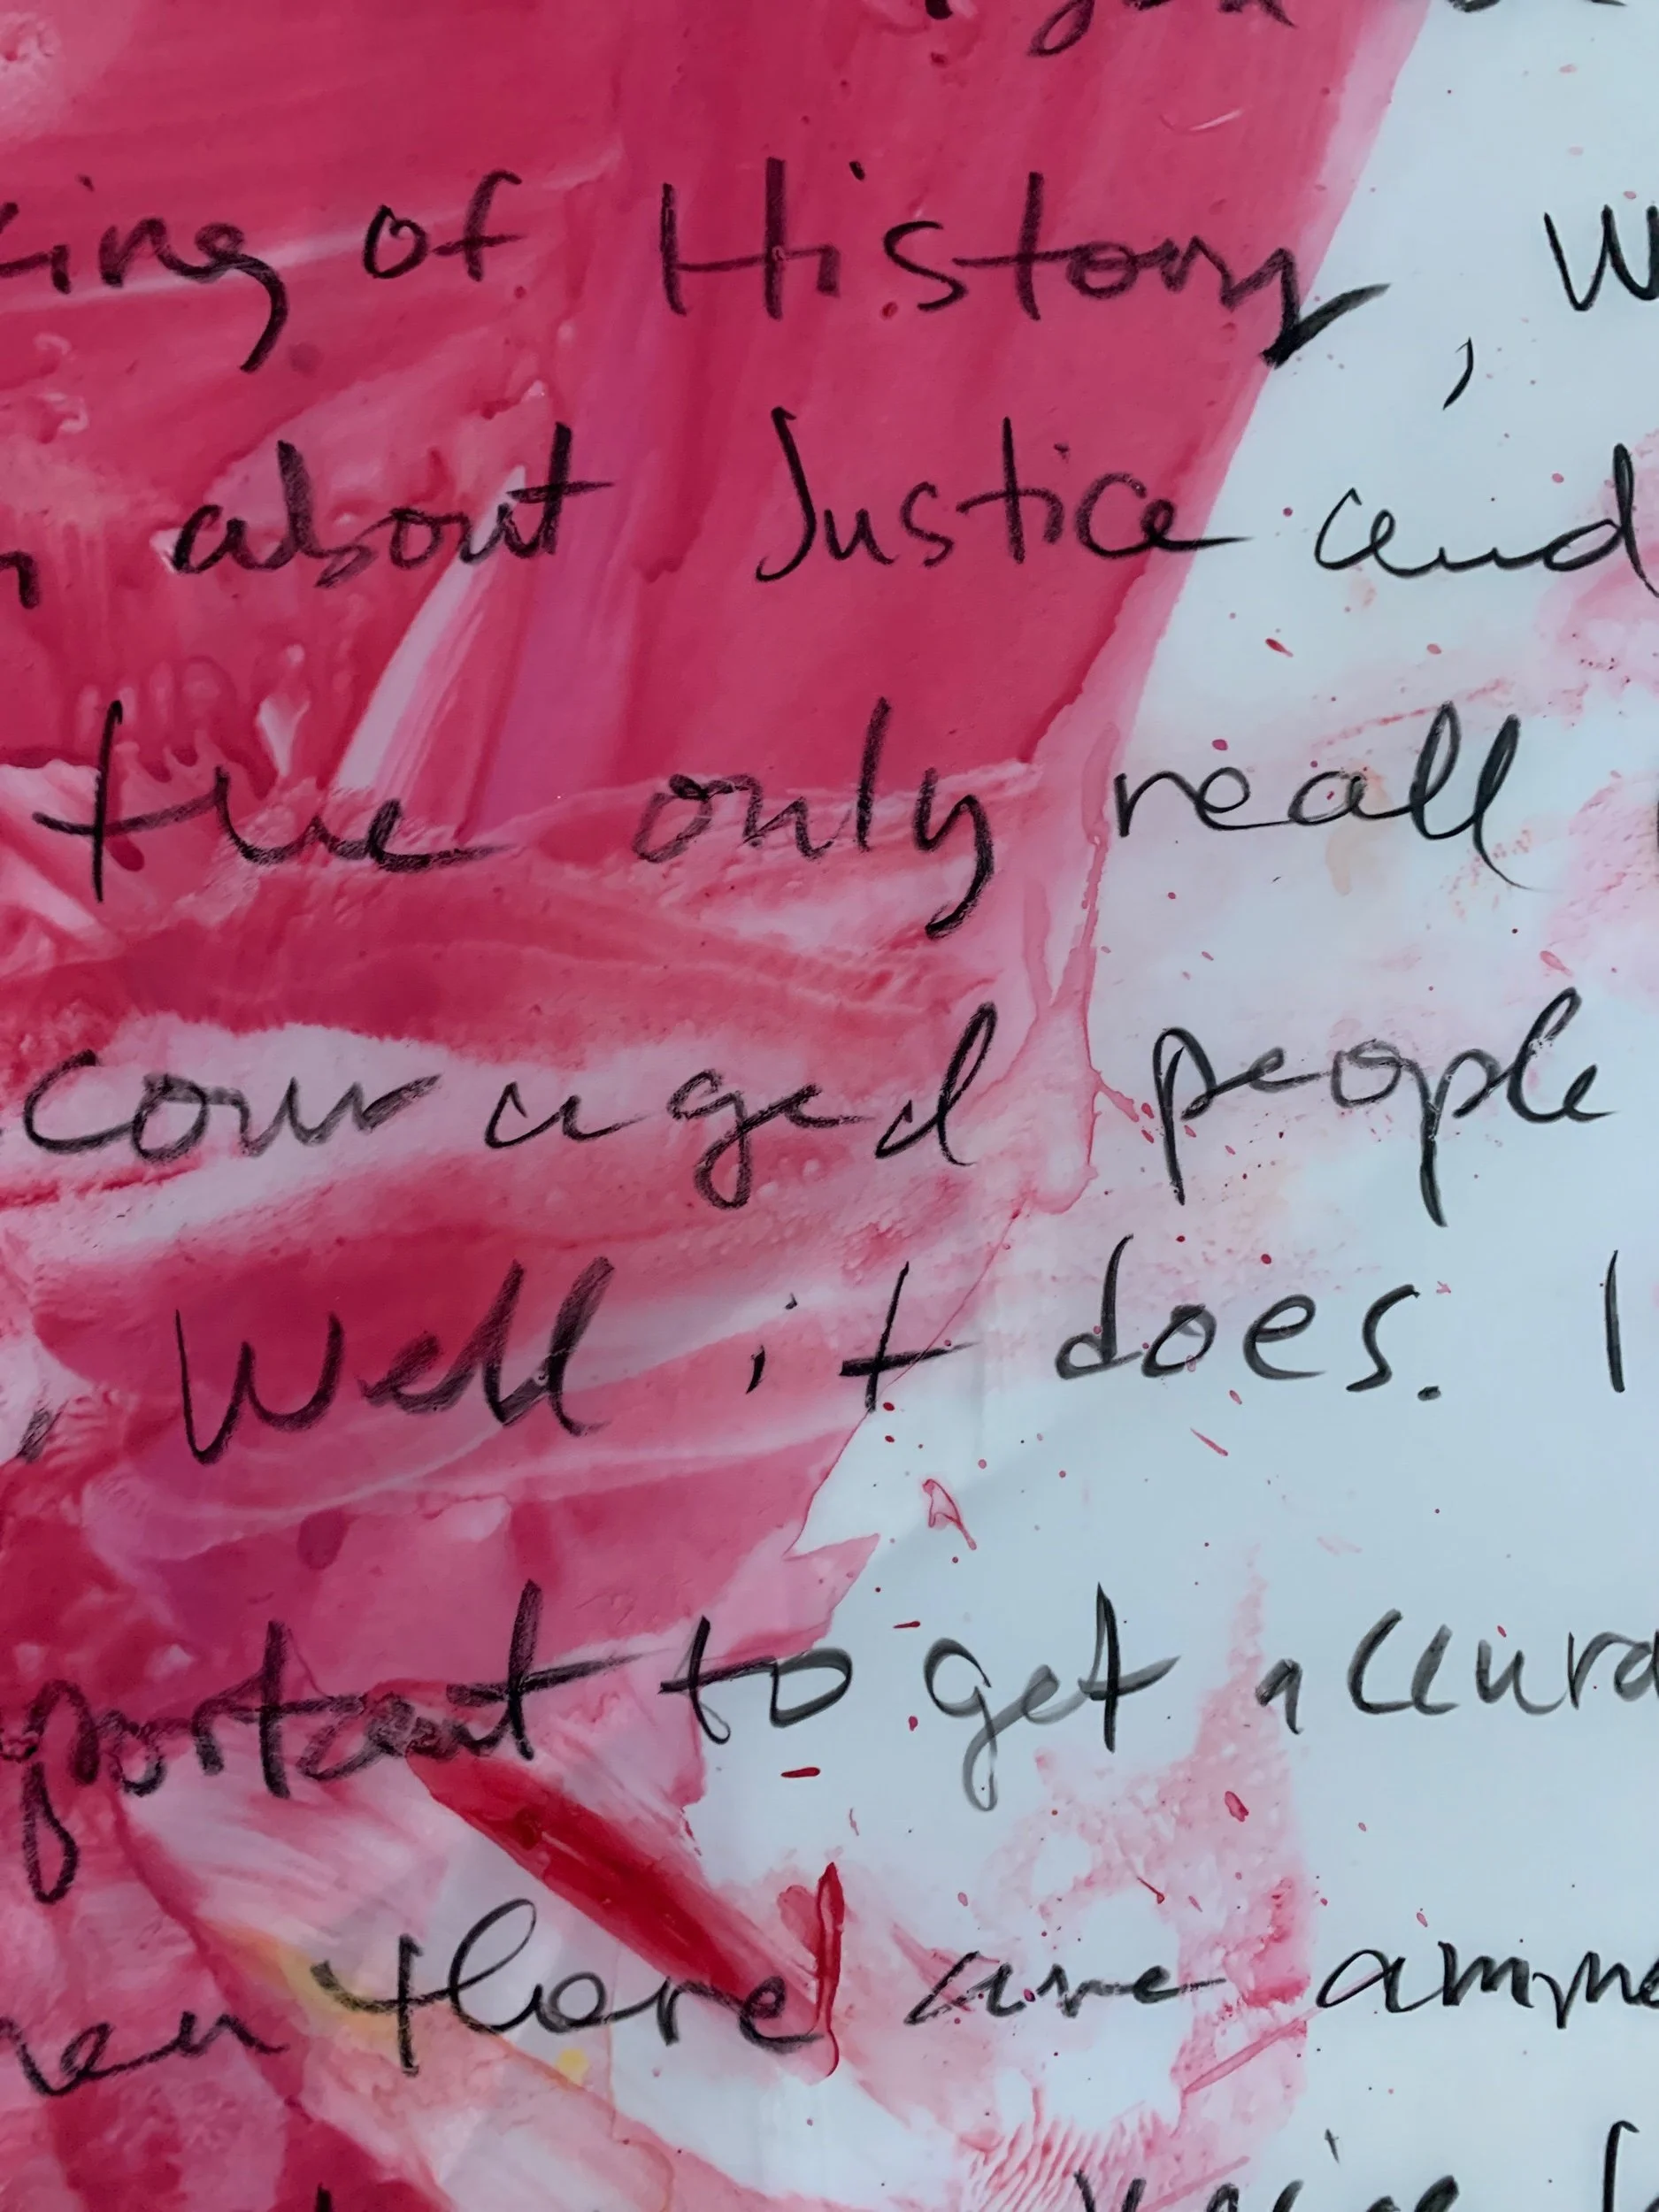 king of History, W
about Justice and
the only reall
couraged people
, Well it does. I
portant to get accura
hen there are amm